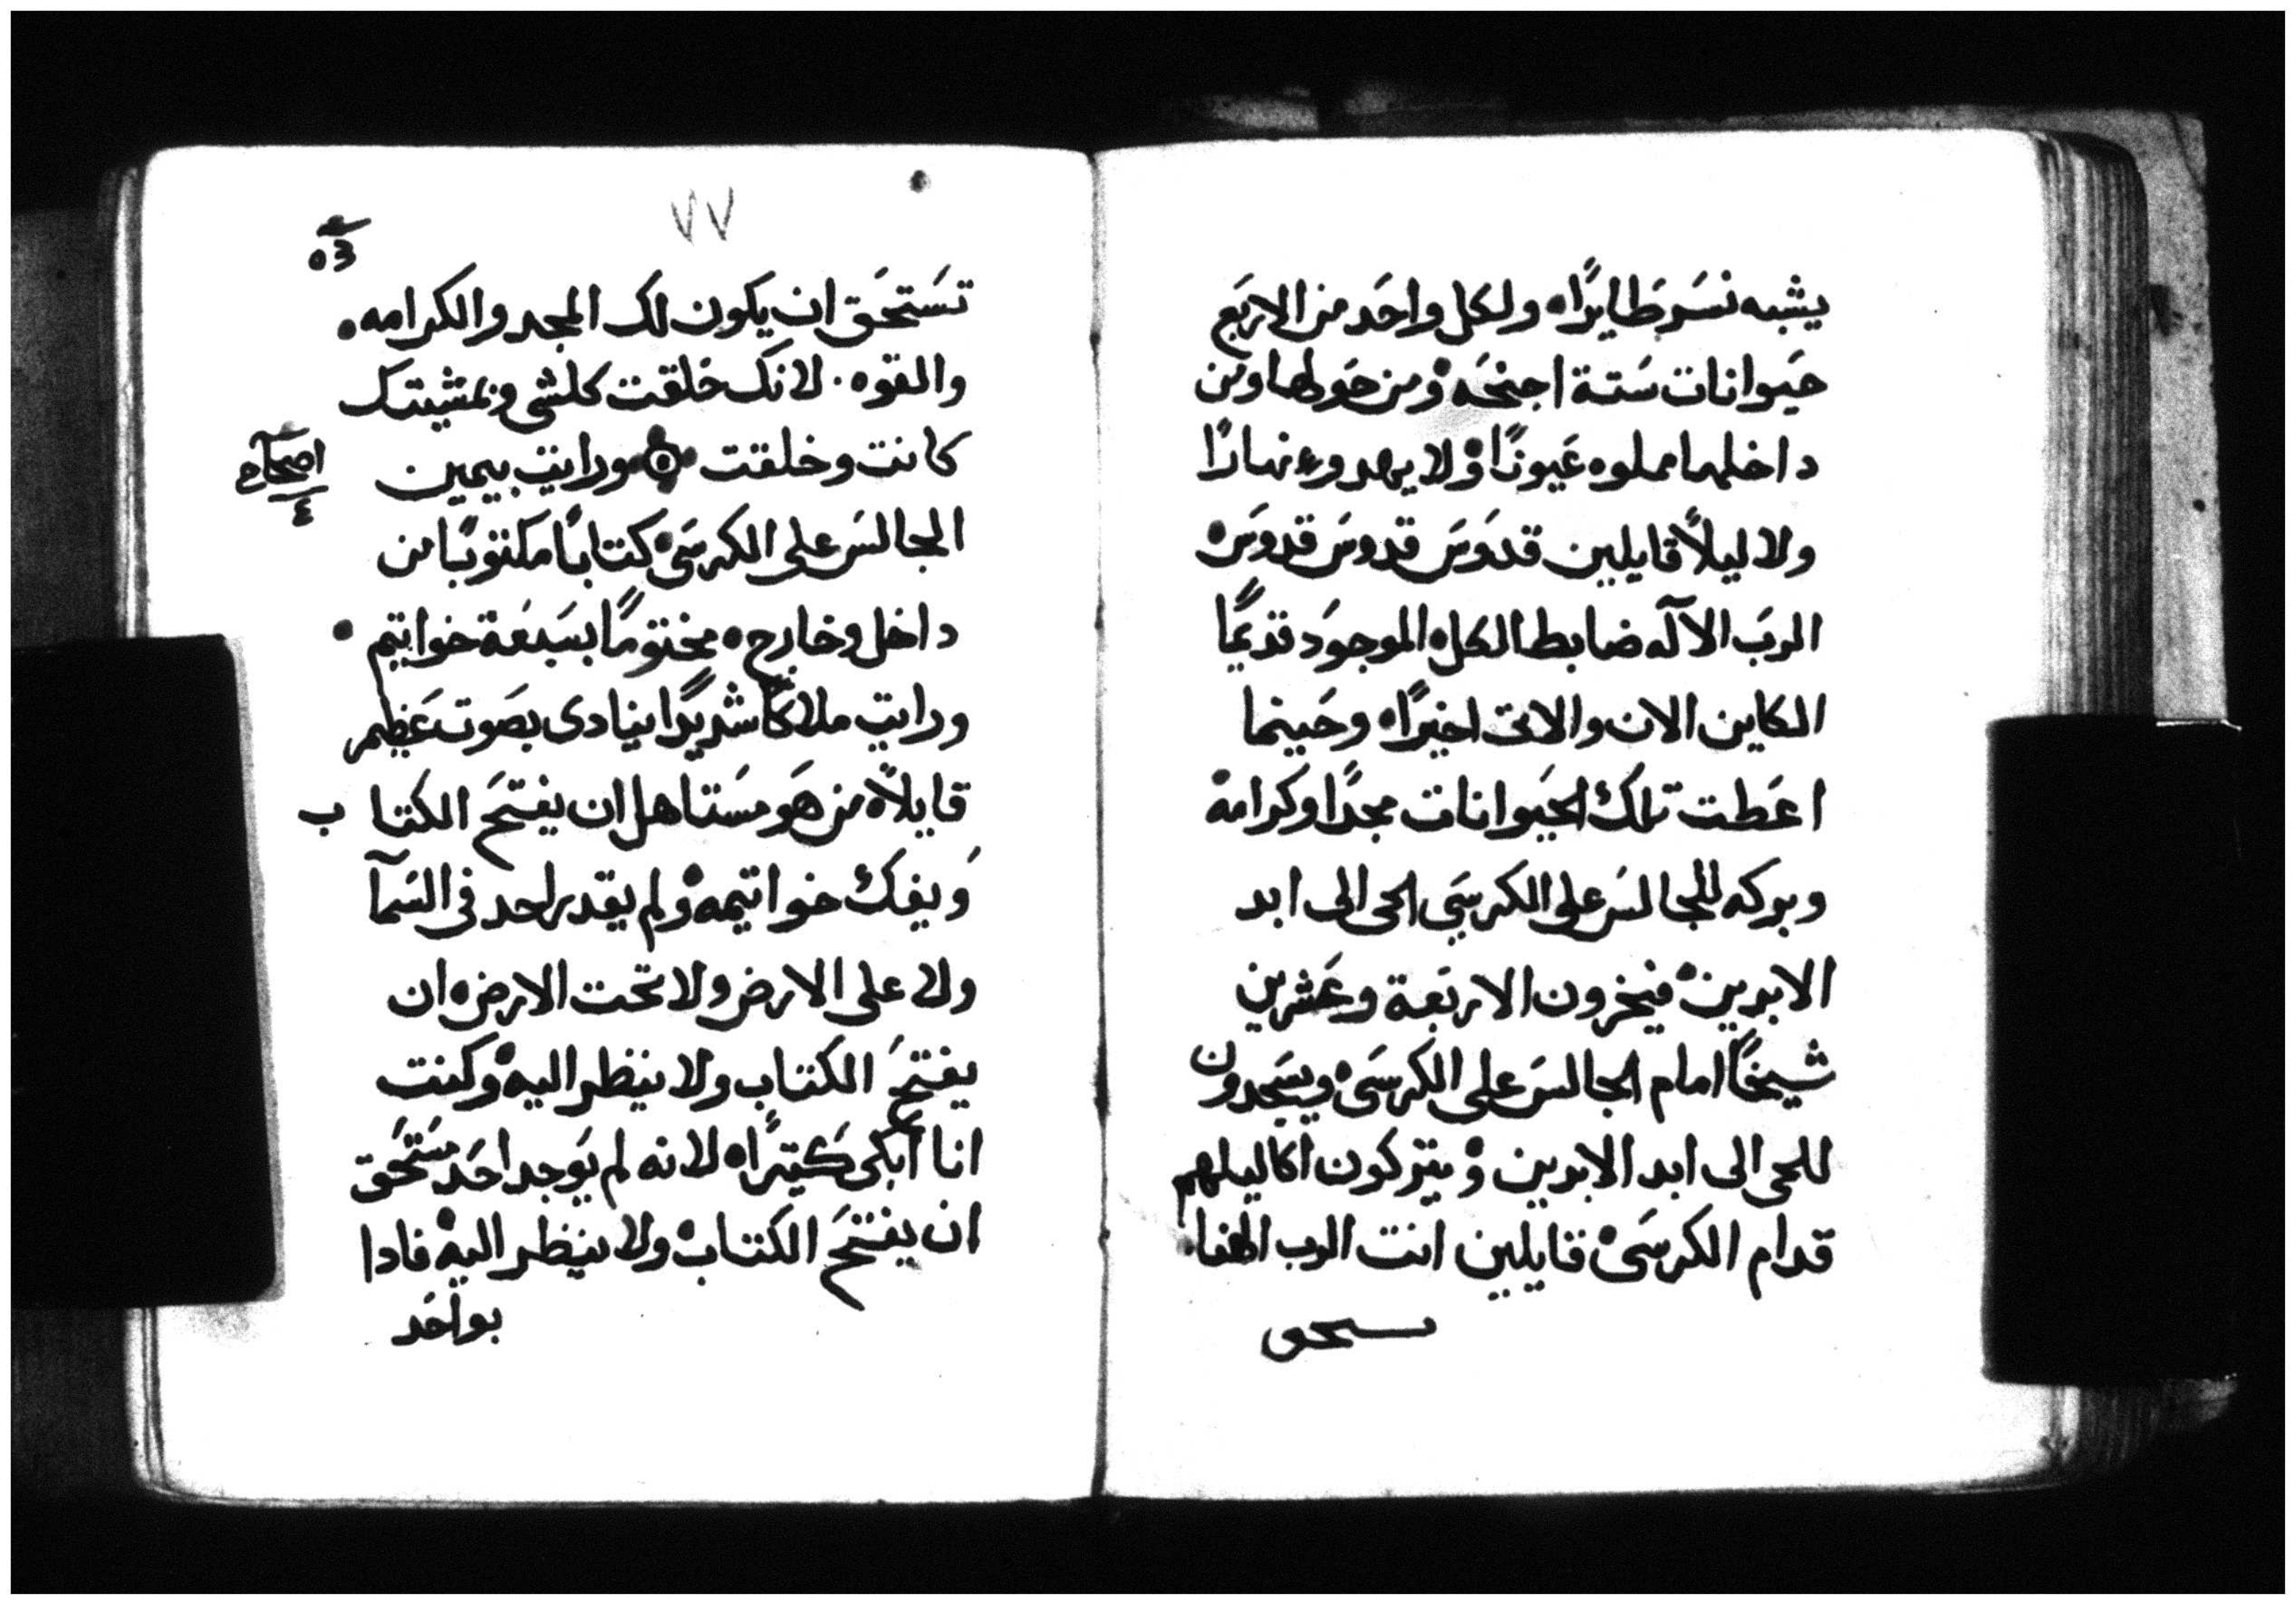 يشبه نسَر طَايرًاه ولكل واحَد من الاربَع
حَيوانات سَتة اجنحَهْ ومن حَولها ومن
داخلها مملوه عَيونًاه ولا يهدوه نهارًا
ولا ليلاً قايلين قدوسَ قدوسَ قدوسَه
الربَ الآله ضابط الكل الموجوَد قديمًا
الكاين الان والاتى اخيرًاه وحَينما
اعَطت تلك الحَيوانات مجدًا وكرامه
وبركه للجالسَ على الكرسَي الحى الى ابد
الابدينْ فيخرون الاربَعة وعَشرين
شيخًا امام الجالسَ على الكرسَىْ ويسَجدون
للحى الى ابد الابدين ويتركون اكاليلهم
قدام الكرسَىْ قايلين انت الرب الهنا
ٮسٮحٯ
٧٧
تسَتحَق ان يكون لك المجد والكرامه
والقوه. لانك خَلقت كلشى وبمشيتك
كانت وخلقت ورايت بيمين
اصحاح
٤
الجالسَ على الكرسَى كتابًا مكتوبًا من
داخل وخارج مختومًا بسَبعَة خواتيم
ورايت ملاكًا شديدًا ينادى بصَوت عَظيم
قايلاً من هَو مسَتاهل ان يفتحَ الكتاب
وَيفك خواتيمهْ ولم يقدر احد فى السَمآ
ولا على الارض ولا تحت الارض ان
يفتحَ الكتاب ولا ينظر اليهْ وكنت
انا ابكى كَتيرًاه لانه لم يوَجد احَد مسَتحَق
ان يفتحَ الكتابْ ولا ينظر اليهْ فادا
بواحَد